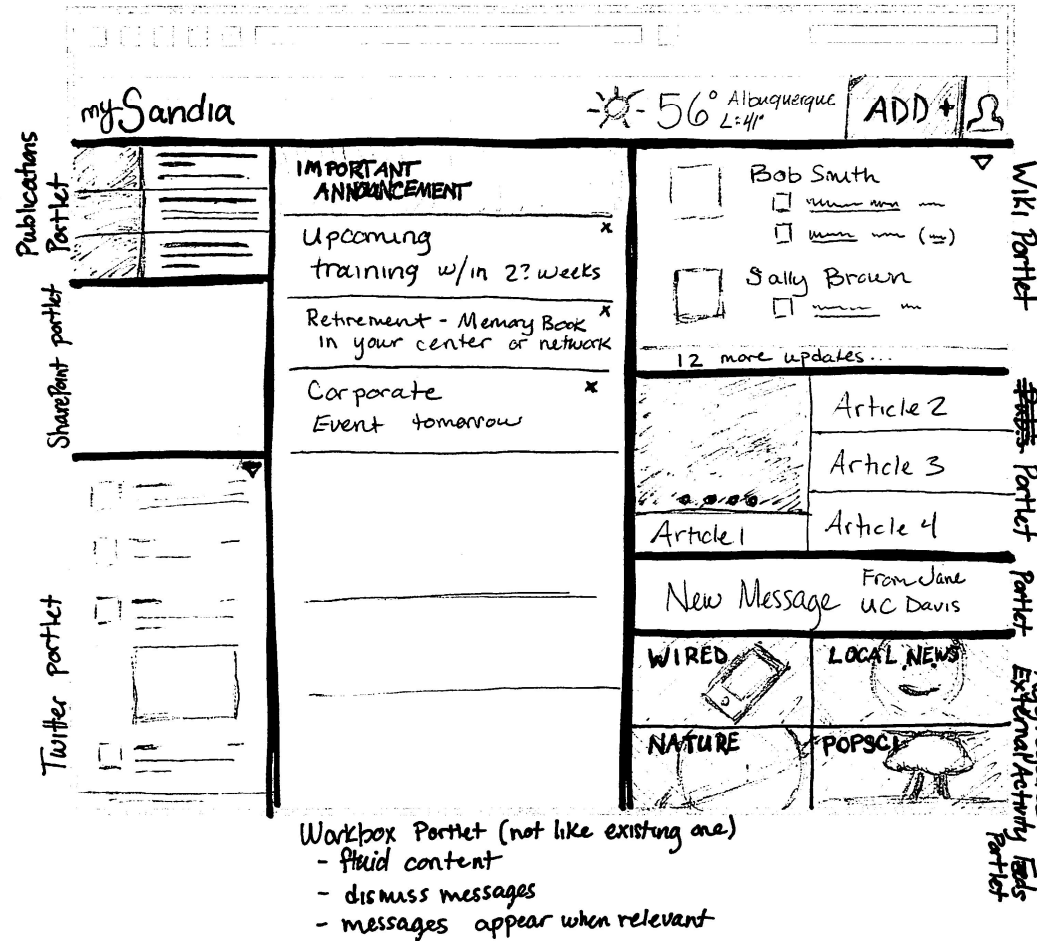 mySandia
56° Albuquerque
L:41°
ADD +
Publications
Portlet
SharePoint portlet
Twitter portlet
IMPORTANT
ANNOUNCEMENT
Upcoming x
training w/in 2? weeks
Retirement - Memory Book x
in your center or network
Corporate x
Event tomorrow
Bob Smith
Sally Brown
12 more updates...
Wiki Portlet
Article 1
Article 2
Article 3
Article 4
Portlet
New Message From Jane
UC Davis
Portlet
WIRED
LOCAL NEWS
NATURE
POPSCI
External Activity Feeds
Portlet
Workbox Portlet (not like existing one)
- fluid content
- dismiss messages
- messages appear when relevant